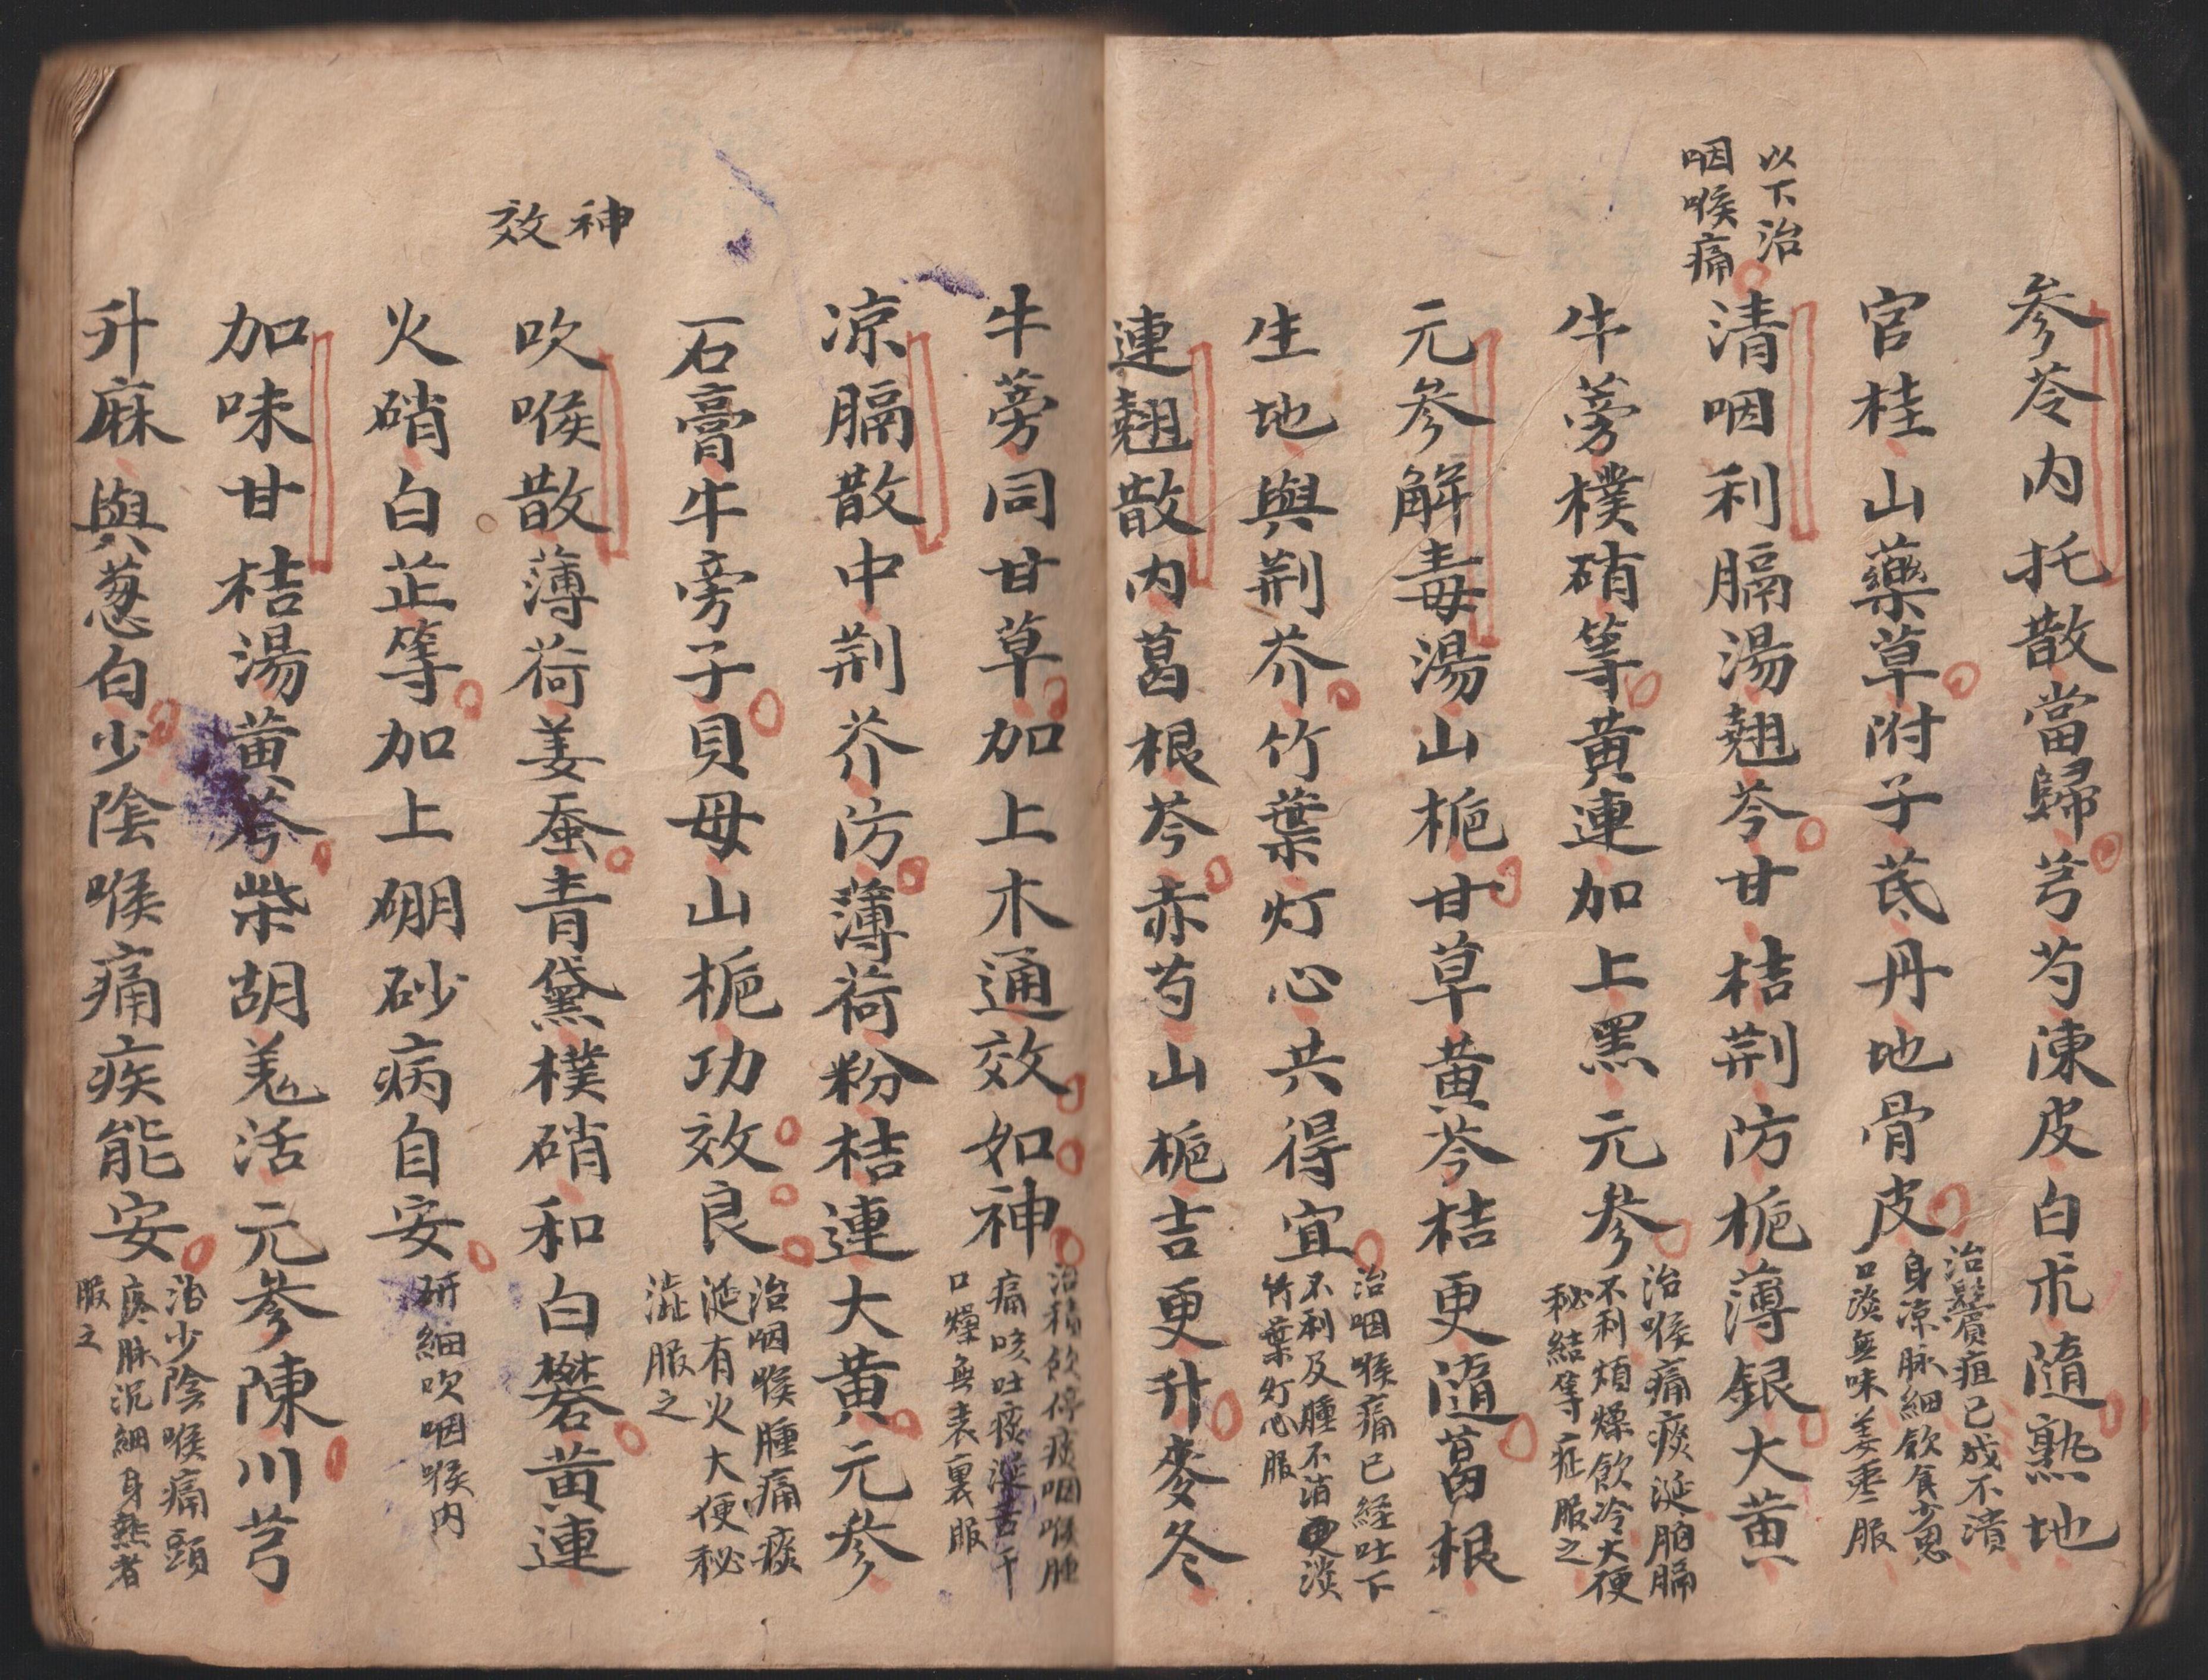 參苓内托散當歸芎芍陳皮白朮隨熟地
官桂山藥草附子芪丹地骨皮
治鬢疽已成不潰
身凉脉細飲食少思
口淡無味姜棗服
以下治
咽喉痛
清咽利膈湯翹芩甘桔荆防梔薄銀大黄
牛蒡樸硝等黄連加上黑元參
治喉痛痰涎胸膈
不利煩燥飲冷大便
秘結等症服之
元參解毒湯山梔甘草黄芩桔更隨葛根
生地與荆芥竹葉灯心共得宜
治咽喉痛已經吐下
不利及腫不消更淡
竹葉灯心服
連翹散内葛根芩赤芍山梔吉更升麥冬
牛蒡同甘草加上木通效如神
治積飲停痰咽喉腫
痛咳吐痰涎舌干
口燥無表裏服
凉膈散中荆芥防薄荷粉桔連大黄元參
石膏牛旁子貝母山梔功效良
治咽喉腫痛痰
涎有火大便秘
澁服之
神效
吹喉散薄荷姜蚕青黛樸硝和白礬黄連
火硝白芷等加上硼砂病自安
研細吹咽喉内
加味甘桔湯黄芩柴胡羌活元參陳川芎
升麻與葱白少陰喉痛疾能安
治少陰喉痛頭
疼脉沉細身熱者
服之